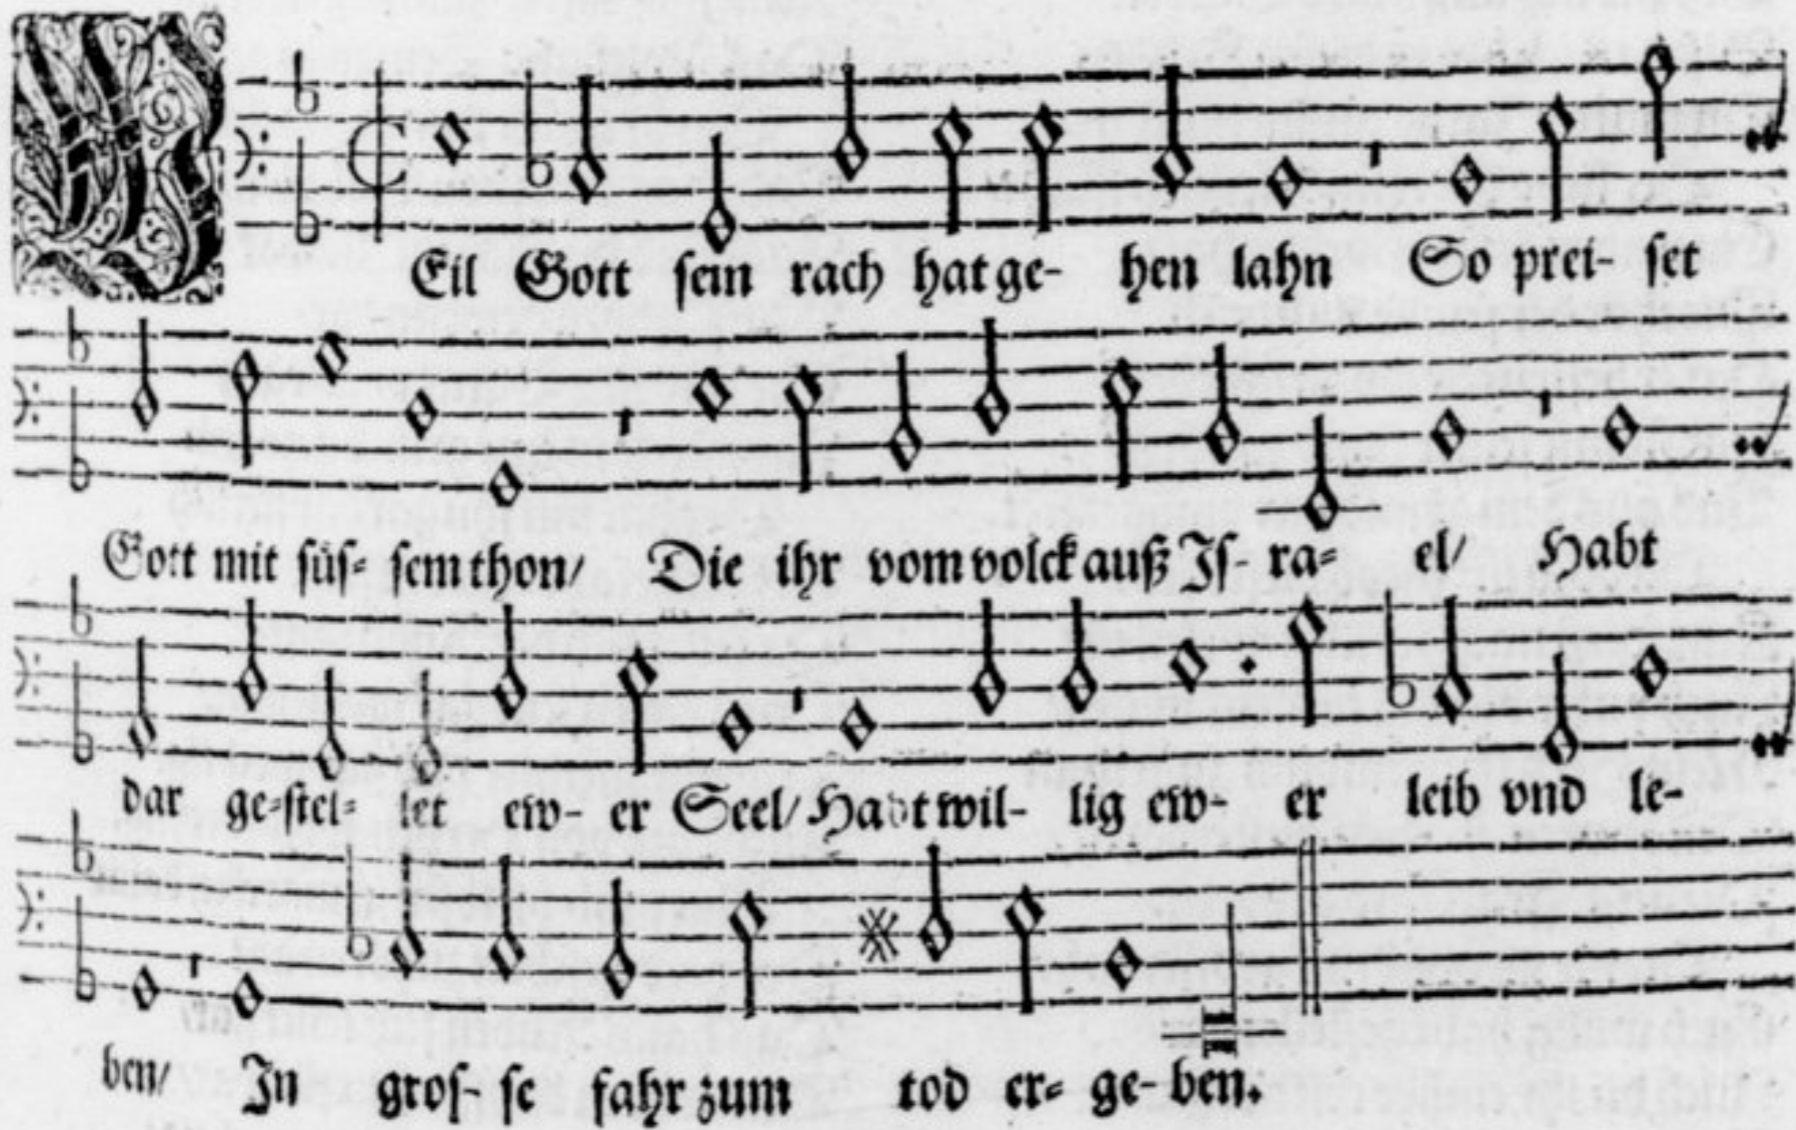 WEil Gott sein rach hat ge- hen lahn So prei- set
Gott mit süs- sem thon/ Die ihr vom volck auß Is- ra- el/ Habt
dar ge-stel- let ew- er Seel/ Habt wil- lig ew- er leib vnd le-
ben/ In gros- se fahr zum tod er- ge- ben.